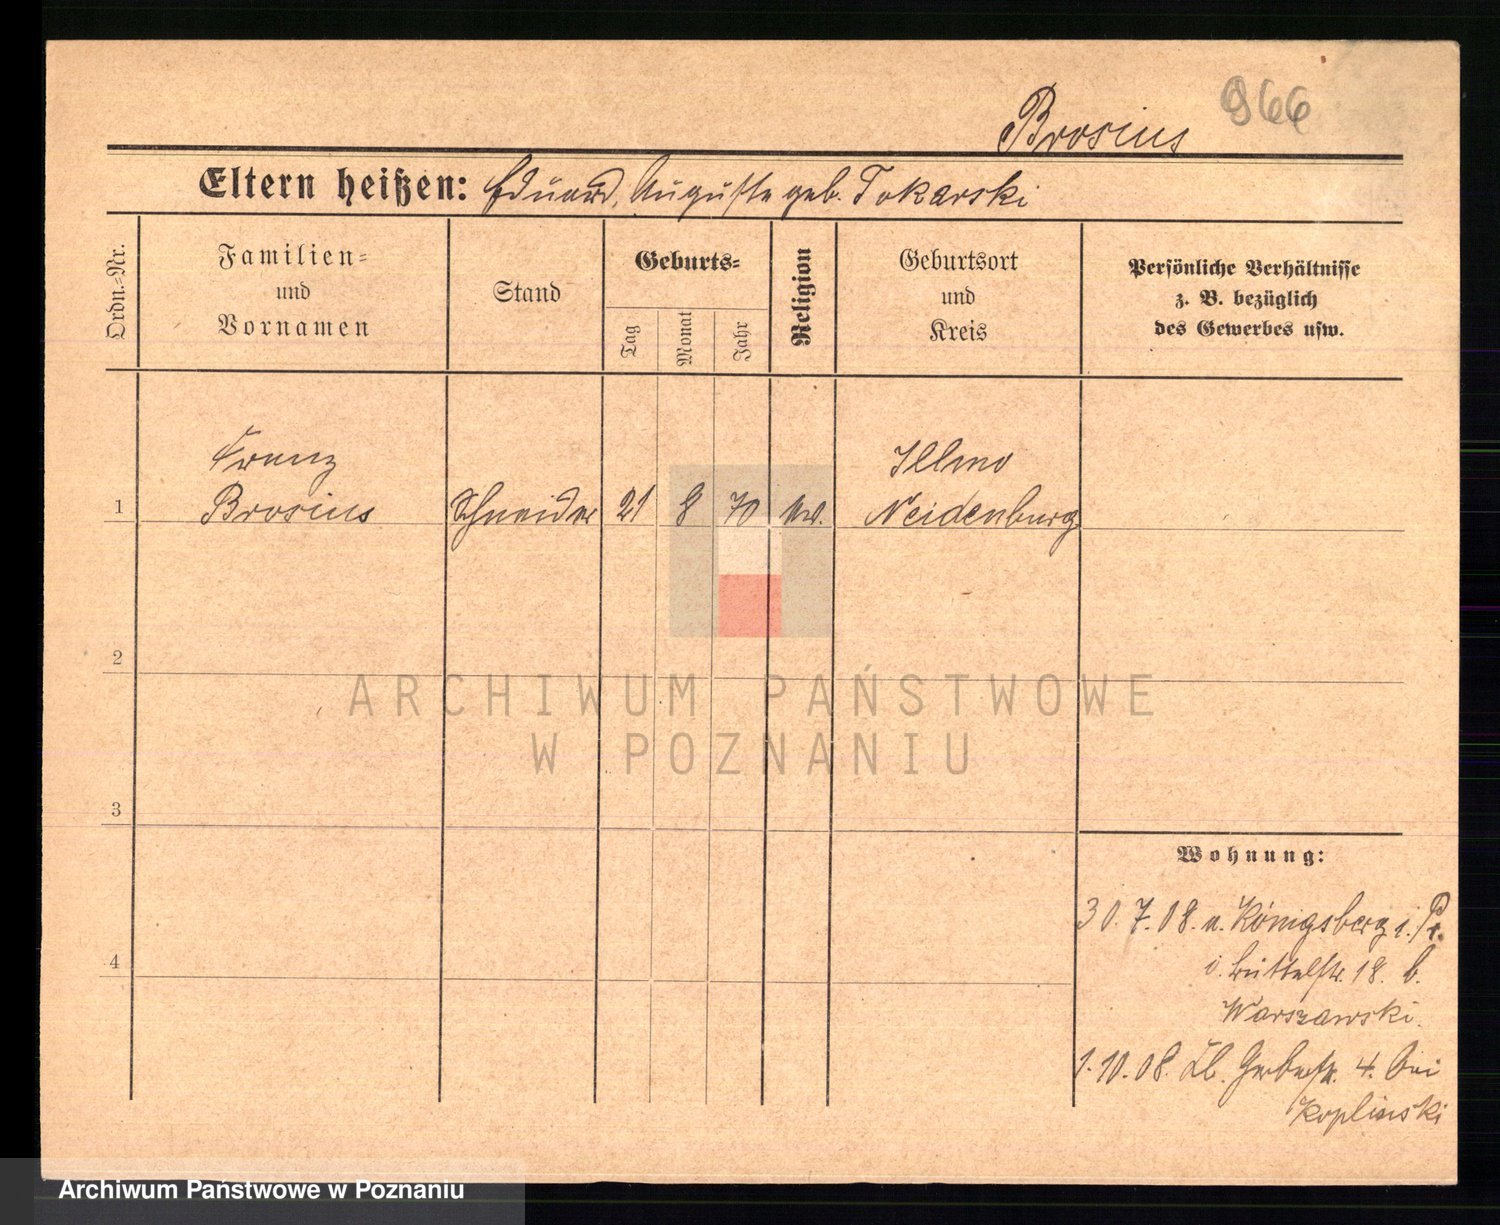 966
Brosius
Eltern heißen: Eduard, Auguste geb. Tokarski
Ordn.-Nr.
Familien-
und
Vornamen
Stand
Geburts-
Tag
Monat
Jahr
Religion
Geburtsort
und
Kreis
Persönliche Verhältnisse
z. B. bezüglich
des Gewerbes usw.
Franz
Illmo
1 Brosius Schneider 21 8 70 ev. Neidenburg
2
ARCHIWUM PAŃSTWOWE
W POZNANIU
3
Wohnung:
30.7.08. a. Königsberg i./Pr.
18. b.
Warszawski.
4
1.10.08. Gerberstr. 4. bei
Koplinski
Archiwum Państwowe w Poznaniu